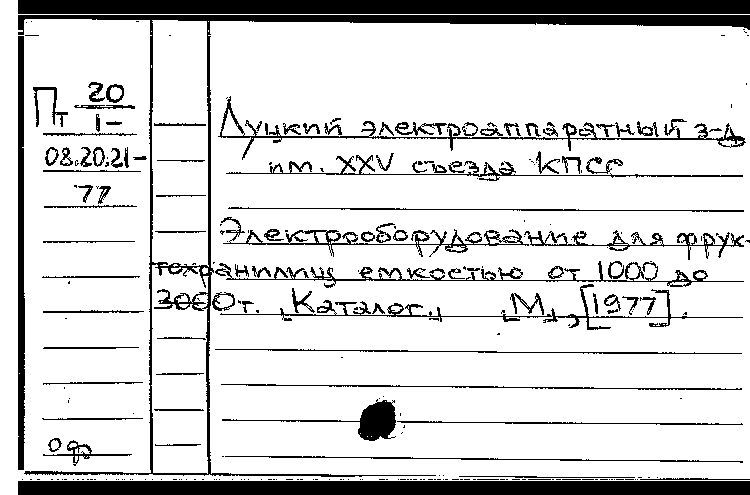 Пт 20
1-
08.20.21-
77
Луцкий электроаппаратный з-д
им. XXV съезда КПСС
Электрооборудование для фрук-
тохранилищ емкостью от 1000 до
3000т. [Каталог.] [М.], [1977].
оф